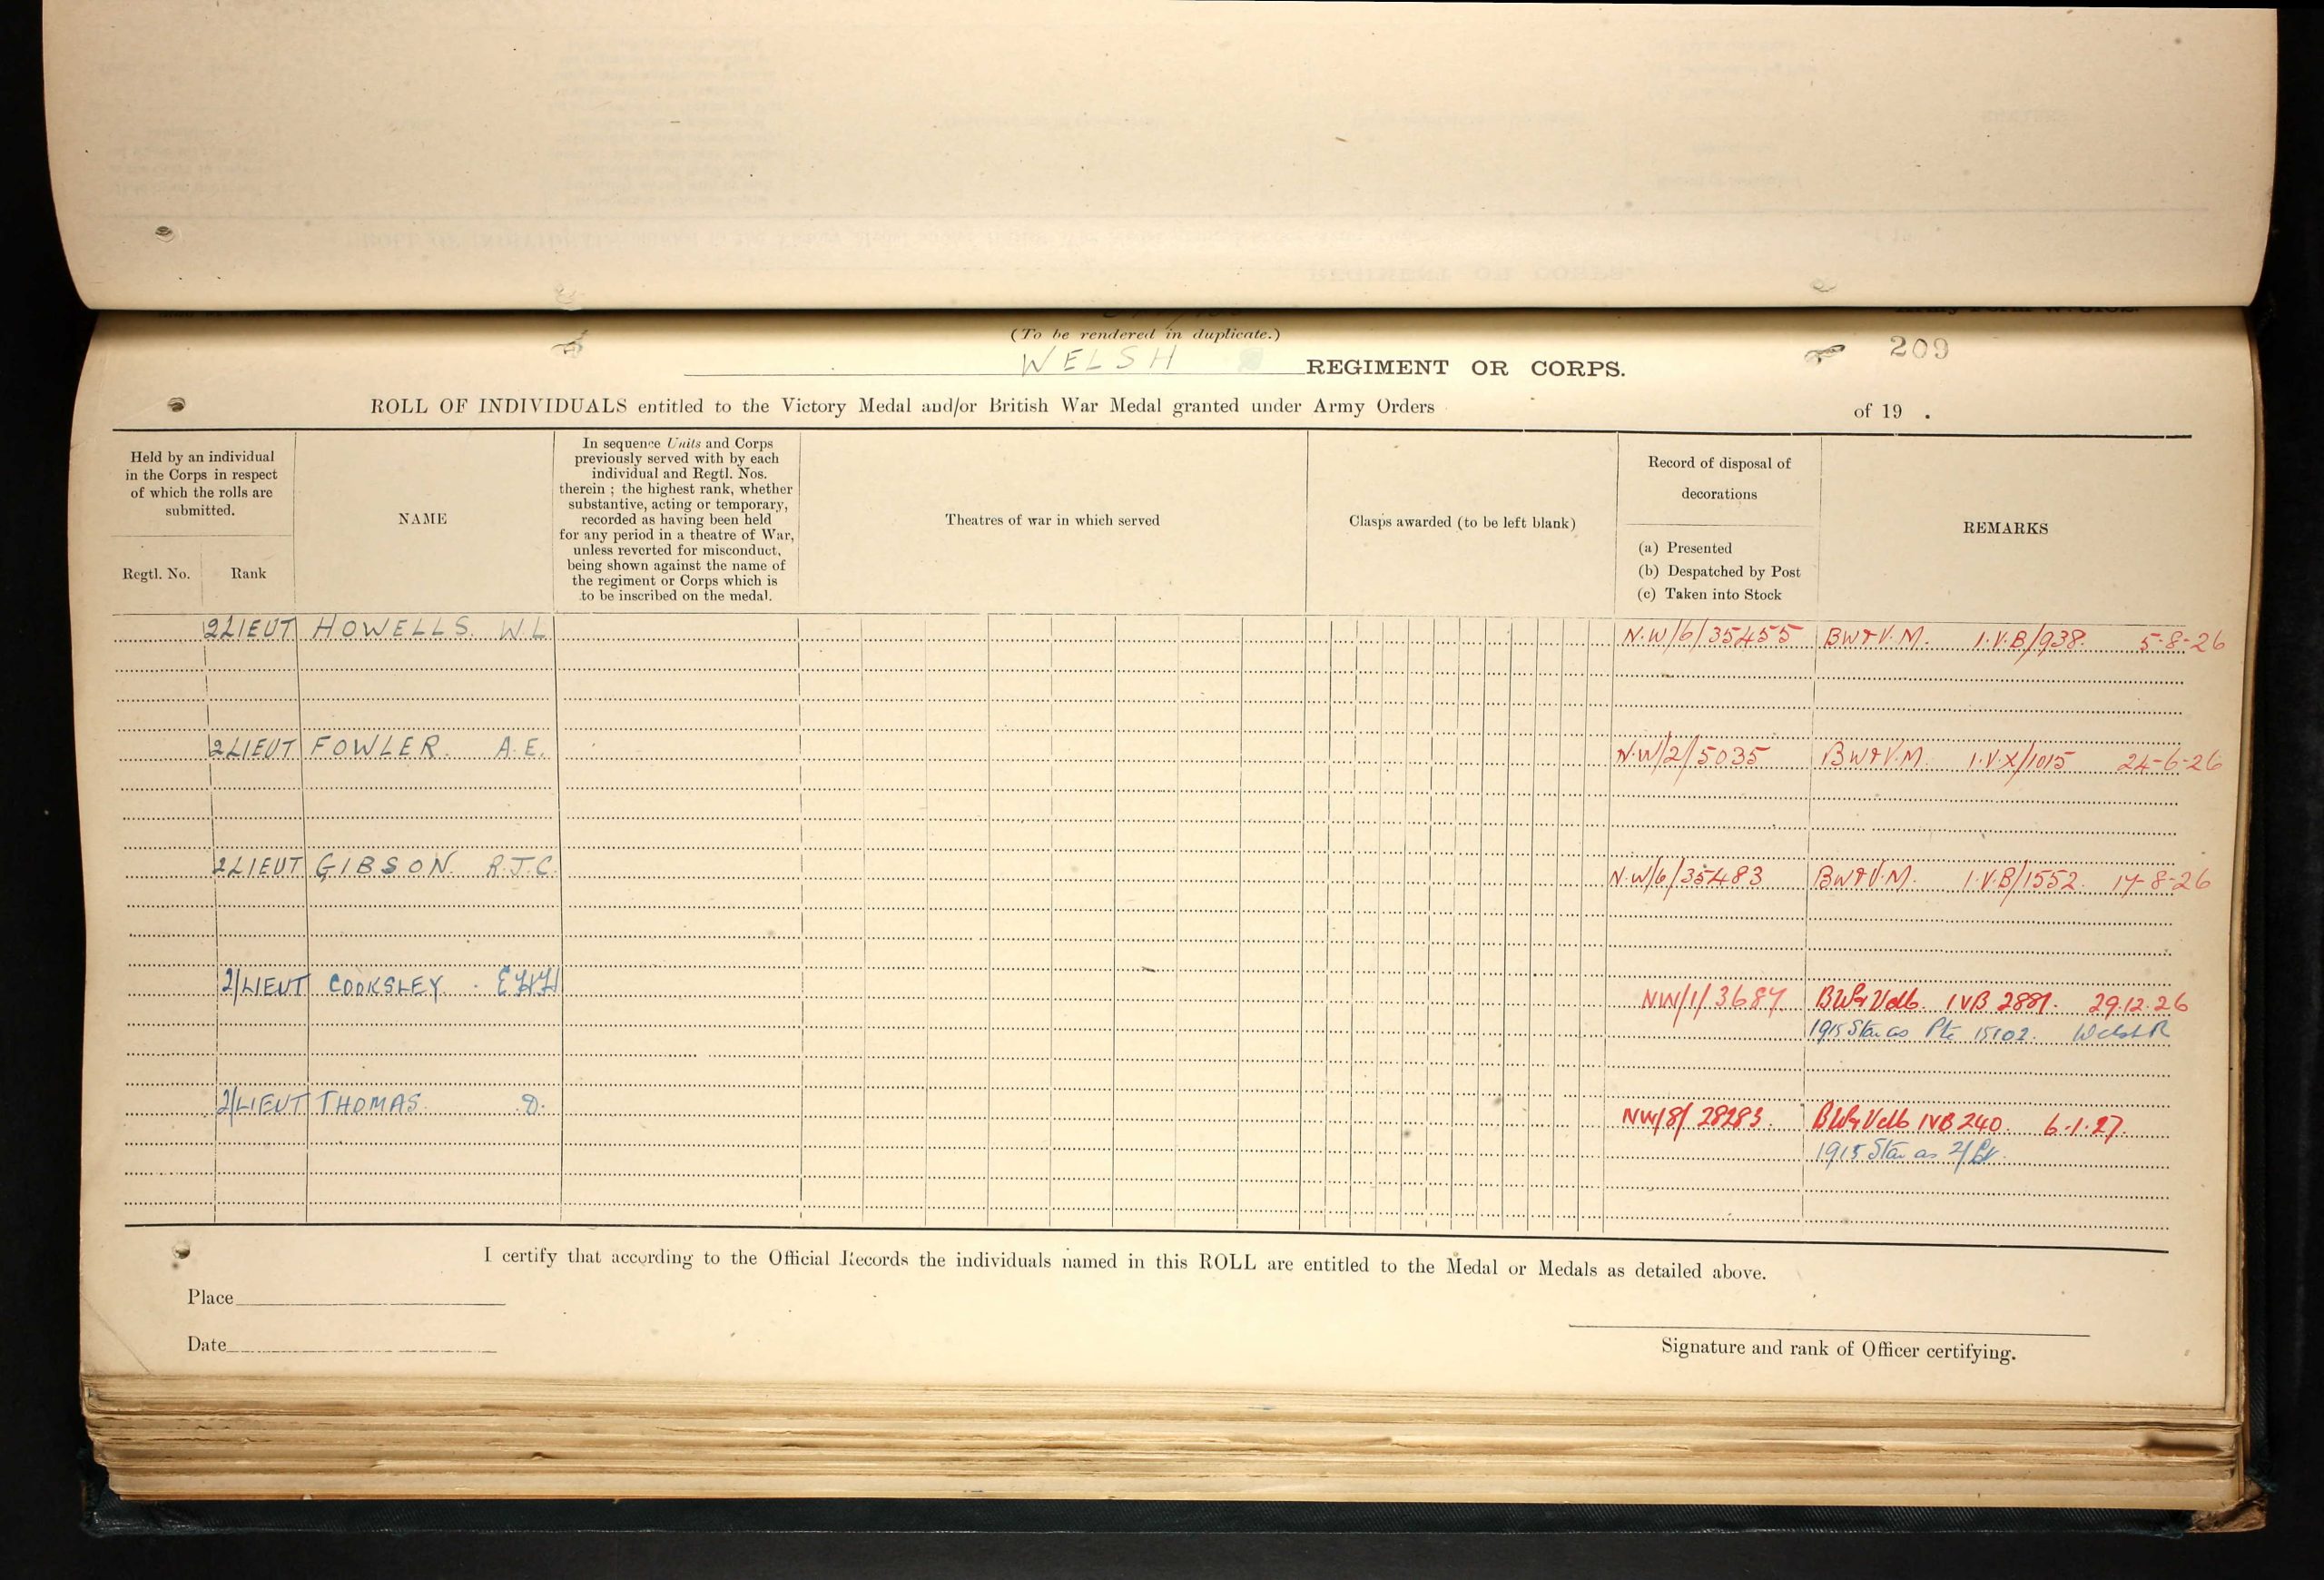 (To be rendered in duplicate.)
209
WELSH REGIMENT OR CORPS.
ROLL OF INDIVIDUALS entitled to the Victory Medal and/or British War Medal granted under Army Orders of 19 .
Held by an individual
in the Corps in respect
of which the rolls are
submitted.
Regtl. No. Rank
NAME
In sequence Units and Corps
previously served with by each
individual and Regtl. Nos.
therein ; the highest rank, whether
substantive, acting or temporary,
recorded as having been held
for any period in a theatre of War,
unless reverted for misconduct,
being shown against the name of
the regiment or Corps which is
to be inscribed on the medal.
Theatres of war in which served
Clasps awarded (to be left blank)
Record of disposal of
decorations
(a) Presented
(b) Despatched by Post
(c) Taken into Stock
REMARKS
2LIEUT HOWELLS. W.L N.W/6/35455 BW&V.M. I.V.B/938. 5-8-26
2LIEUT FOWLER. A.E. N.W/2/5035 BW&V.M. I.V.X/1015 24-6-26
2LIEUT GIBSON. R.J.C. N.W/6/35483 BW&V.M. I.V.B/1552. 17-8-26
2/LIEUT COOKSLEY. NW/1/3687 IVB 2881. 29.12.26
1915 Star as Pte 15102. Welsh R
2/LIEUT THOMAS. D. NW/8/28283. IVB 240. 6.1.27.
1915 Star as 2/Lt.
I certify that according to the Official Records the individuals named in this ROLL are entitled to the Medal or Medals as detailed above.
Place
Date
Signature and rank of Officer certifying.